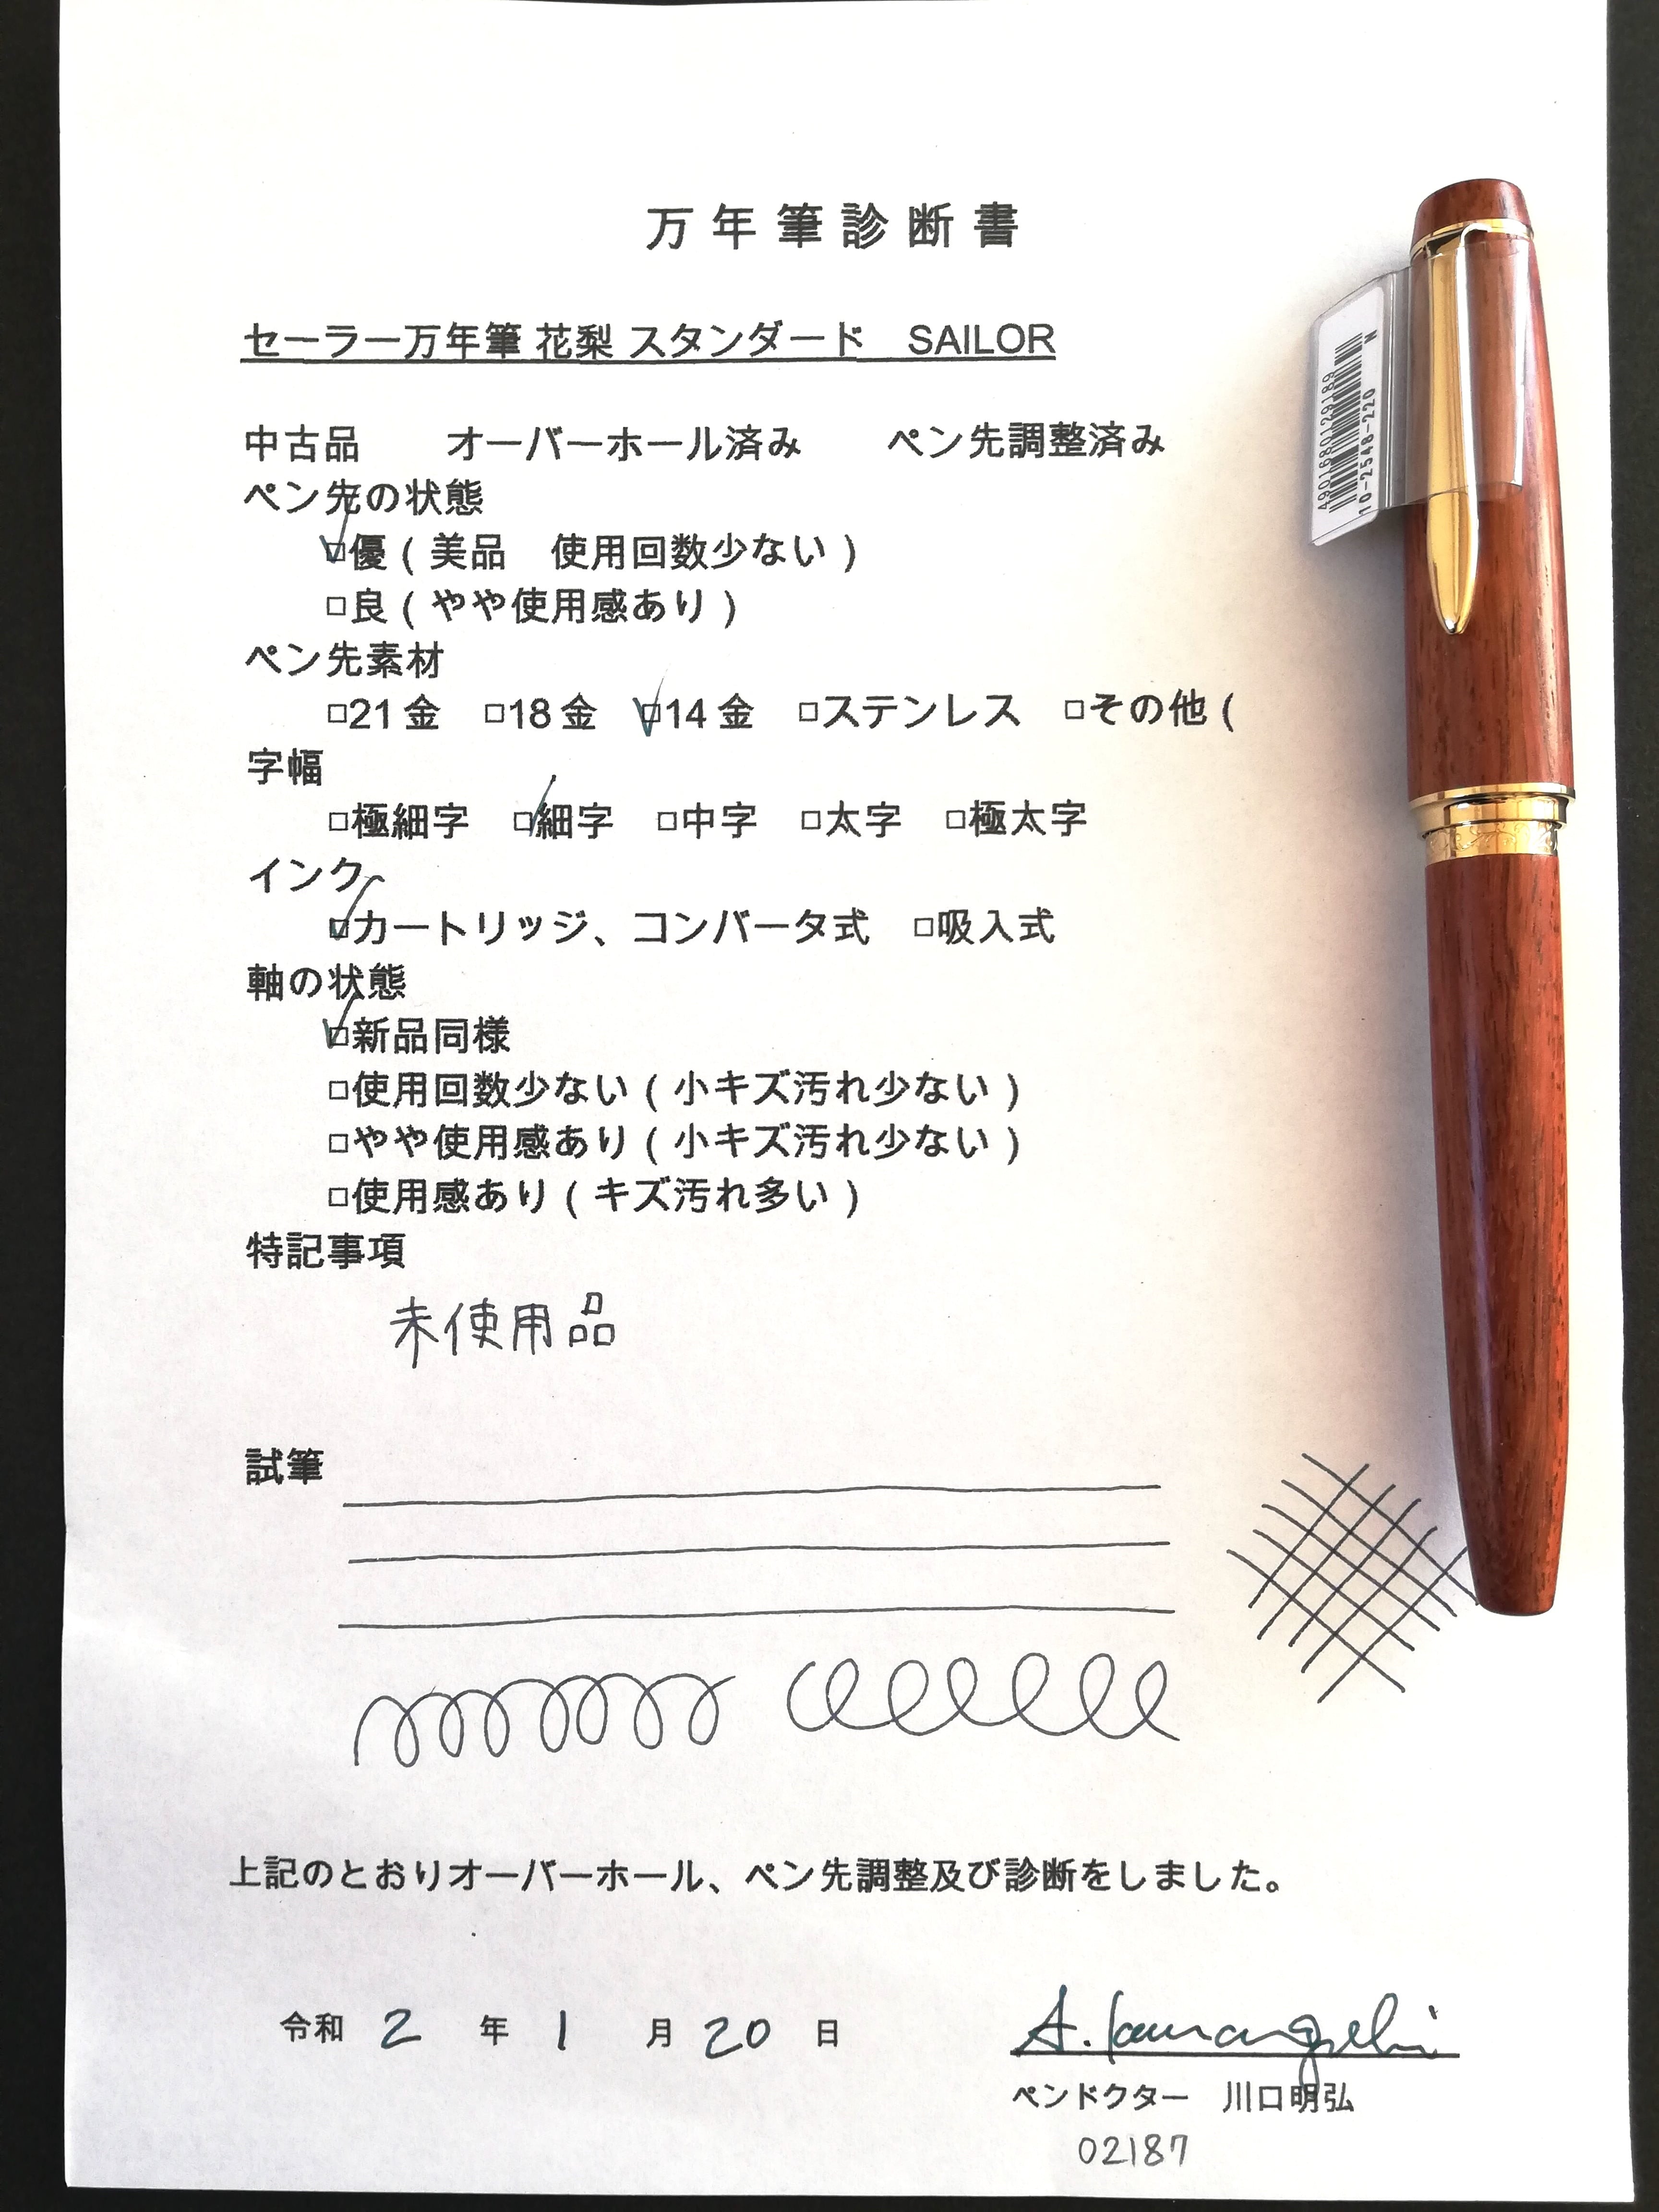 万年筆診断書
セーラー万年筆 花梨 スタンダード　SAILOR
中古品　　オーバーホール済み　　ペン先調整済み
ペン先の状態
☑優（美品　使用回数少ない）
□良（やや使用感あり）
ペン先素材
□21金　□18金　☑14金　□ステンレス　□その他（
字幅
□極細字　☑細字　□中字　□太字　□極太字
インク
☑カートリッジ、コンバータ式　□吸入式
軸の状態
☑新品同様
□使用回数少ない（小キズ汚れ少ない）
□やや使用感あり（小キズ汚れ少ない）
□使用感あり（キズ汚れ多い）
特記事項
未使用品
試筆
上記のとおりオーバーホール、ペン先調整及び診断をしました。
令和 2 年 1 月 20 日
A. Kawaguchi
ペンドクター　川口明弘
02187
4901680129189
10-2548-220